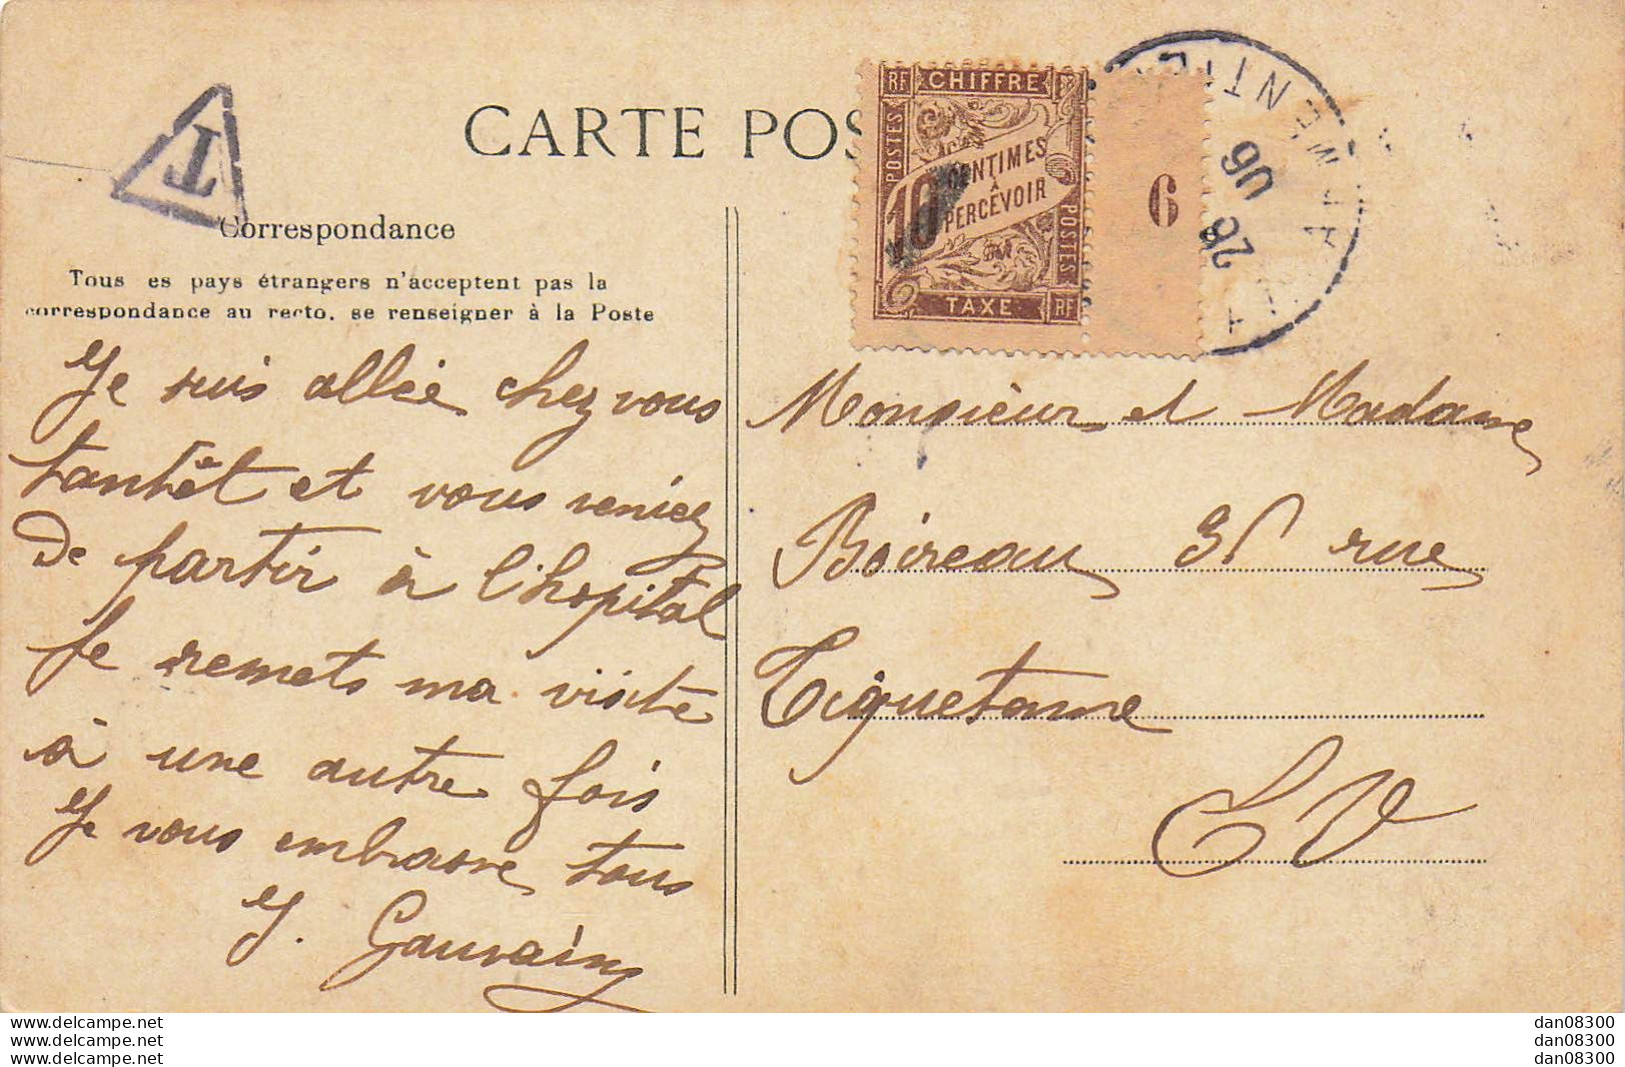 T
CARTE POS
RF CHIFFRE
POSTES
10 CENTIMES
À
PERCEVOIR
POSTES
TAXE RF
6
28
06
Correspondance
Tous es pays étrangers n'acceptent pas la
correspondance au recto, se renseigner à la Poste
Je suis allée chez vous
tantêt et vous veniez
de partir à l'hopital
Je remets ma visite
à une autre fois
Je vous embrasse tous
J. Gauvain
Monsieur et Madame
Boireau rue
Tiquetonne
EV
www.delcampe.net
www.delcampe.net
www.delcampe.net
dan08300
dan08300
dan08300